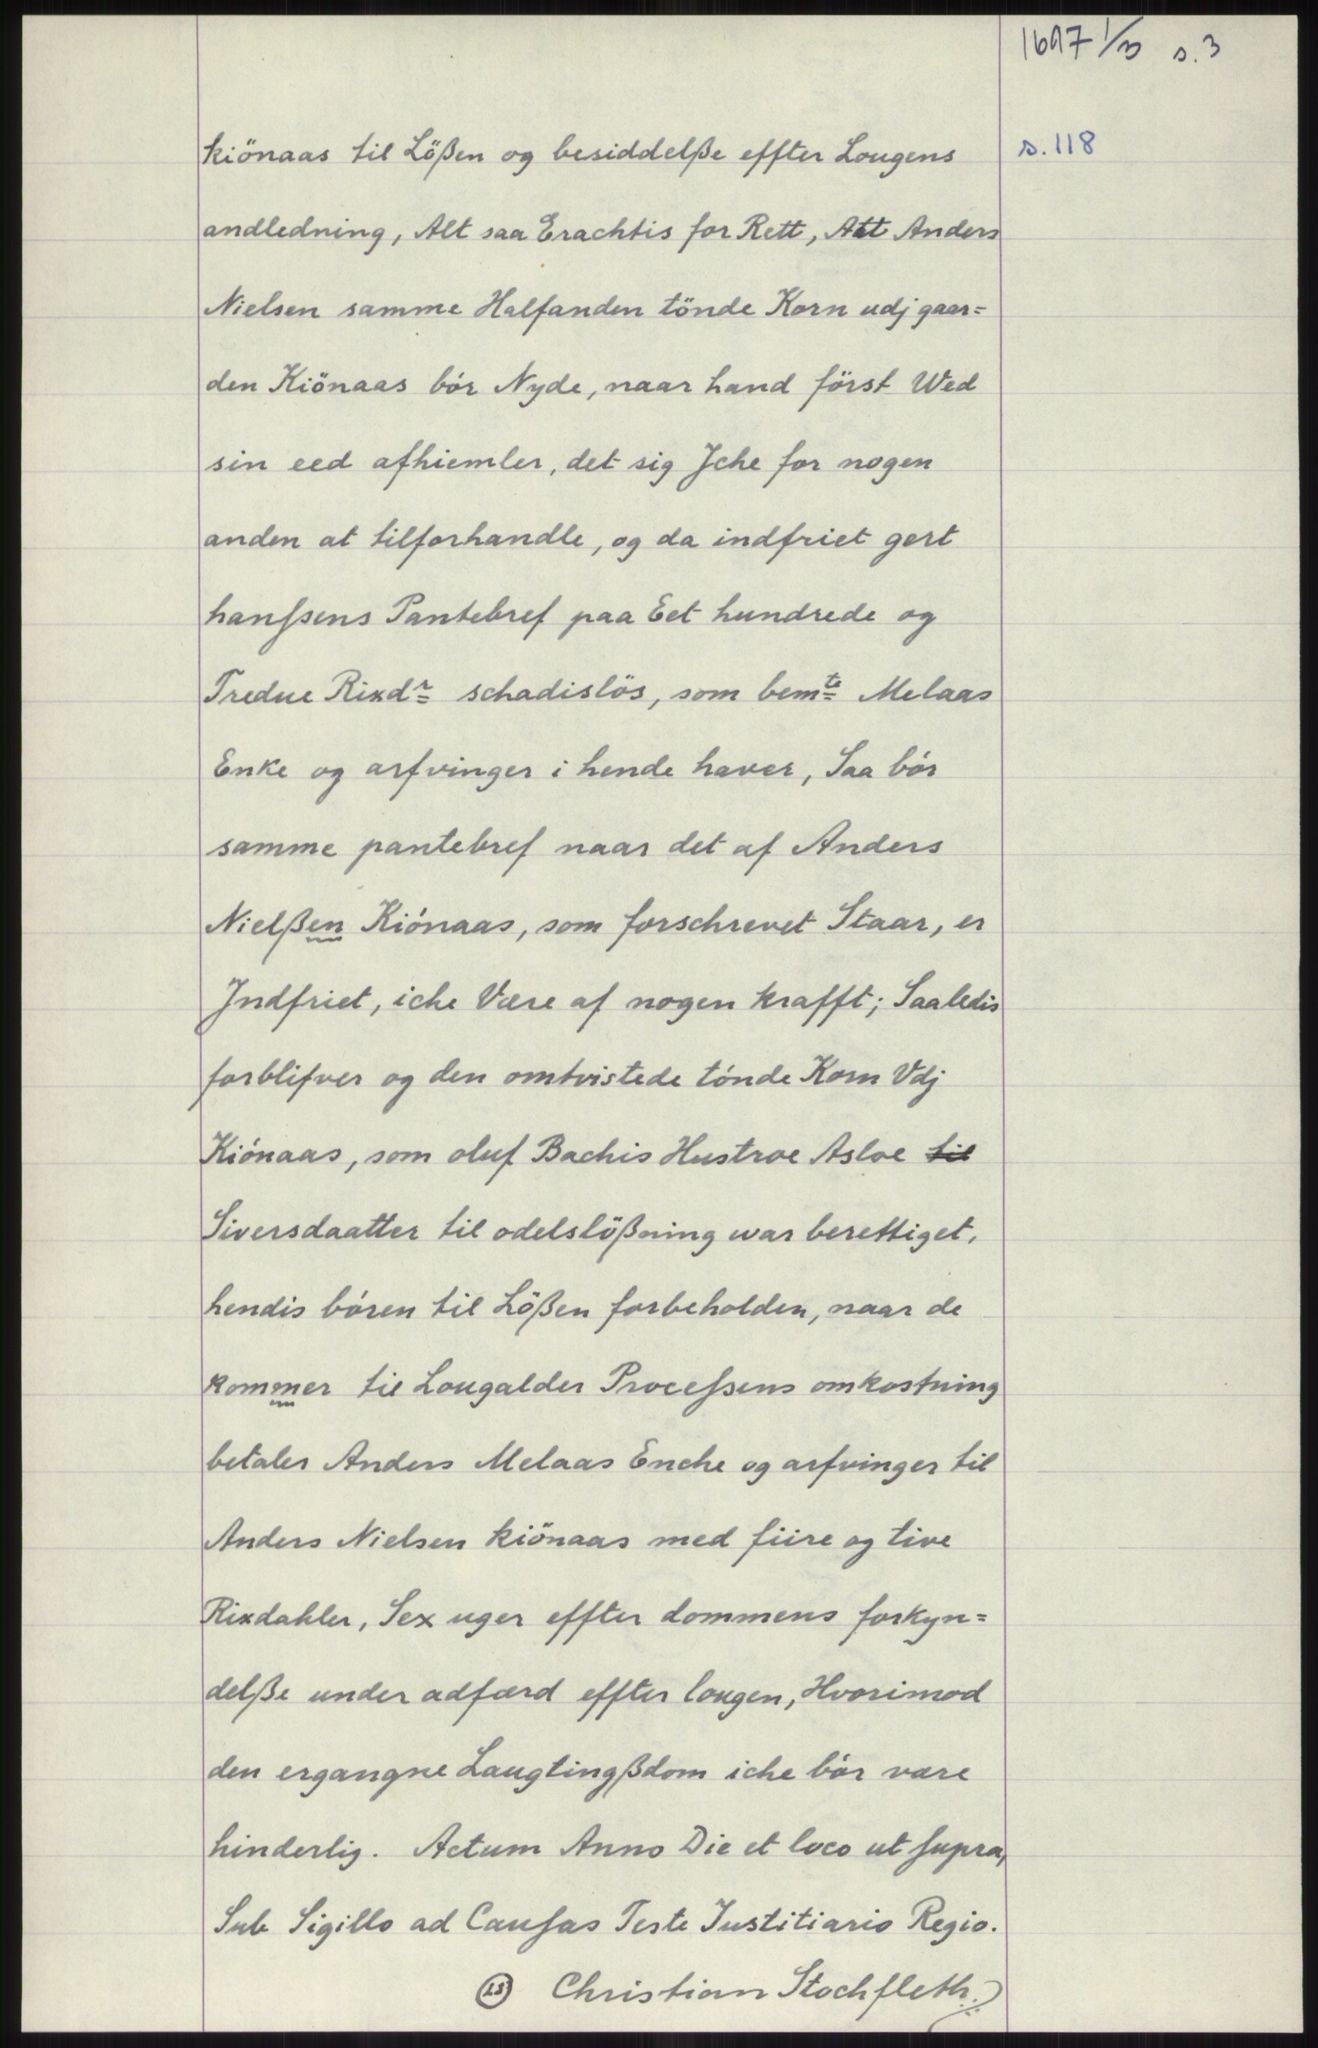 1697 1/3 s. 3
s. 118
kiönaas til Lößen og besiddelße effter Lougens
andledning, Alt saa Erachtis for Rett, Att Anders
Nielsen samme Halfanden tönde Korn udj gaar=
den Kiönaas bör Nyde, naar hand först Wed
sin eed afhiemler, det sig Jche for nogen
anden at tilforhandle, og da indfriet gert
hanſsens Pantebref paa Eet hundrede og
Tredue Rixdr schadislös, som bemte Melaas
Enke og arfvinger i hende haver, Saa bór
samme pantebref naar det af Anders
Nielßen Kiónaas, som forschrevet Staar, er
Jndfriet, iche Være af nogen krafft; Saaledis
forblifver og den omtvistede tónde Korn Vdj
Kiónaas, som oluf Bachis Hustroe Asloe til
Siversdaatter til odelslößning war berettiget,
hendis bóren til Lößen forbeholden, naar de
kommer til Lougalder Proceſsens omkostning
betaler Anders Melaas Enche og arfvinger til
Anders Nielsen kiönaas med fiire og tive
Rixdahler, Sex uger effter dommens forkyn=
delße under adfærd effter lougen, Hvorimod
den ergangne Laugtingßdom iche bór være
hinderlig. Actum Anno Die et loco ut ſupra,
Sub Sigillo ad Cauſas Teste Justitiario Regio.
LS Christian Stochfleth.